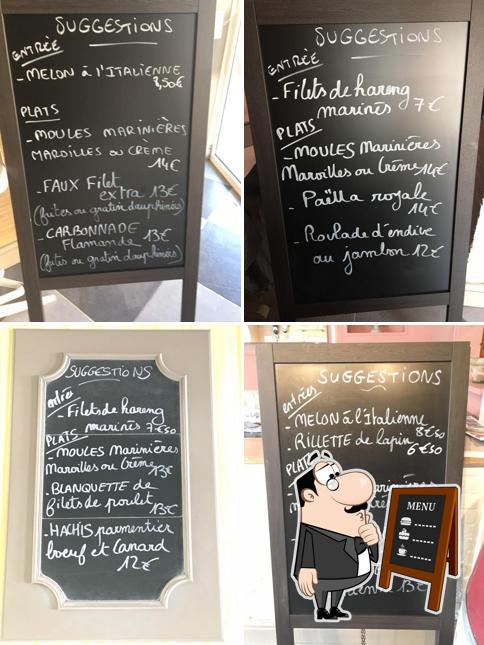 SUGGESTIONS
ENTRÉE
- MELON à l'ITALIENNE
8,50€
PLATS
- MOULES MARINIÈRES
MAROILLES OU CRÈME
14€
- FAUX Filet
extra 13€
(frites ou gratin dauphinois)
- CARBONNADE
Flamande 13€
(frites ou gratin dauphinois)
SUGGESTIONS
ENTRÉE
- Filets de hareng
marinés 7€
PLATS
- MOULES Marinières
Maroilles ou Crème 14€
- Paëlla royale
14€
- Roulade d'endive
au jambon 12€
SUGGESTIONS
entrées
- Filets de hareng
marinés 7€50
PLATS
- MOULES Marinières
Maroilles ou Crème 13€
- BLANQUETTE de
filets de poulet
13€
- HACHIS parmentier
boeuf et Canard
12€
SUGGESTIONS
entrées
- MELON à l'Italienne
8€50
- RILLETTE de lapin
6€50
PLATS
MENU